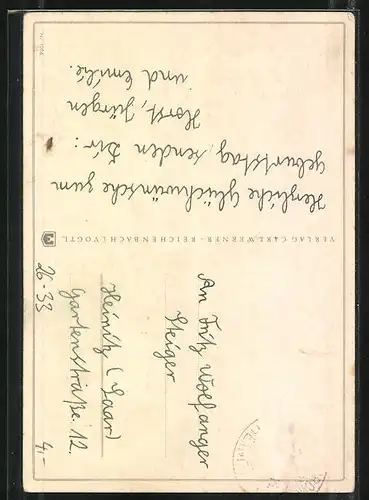 Herzliche Glückwünsche zum
Geburtstag, senden Dir:
Horst, Jürgen
und Emilie.
VERLAG CARL WERNER · REICHENBACH I. VOGTL.
An Fritz Wolfanger
Steiger
Heinitz (Saar)
Gartenstraße. 12.
26-33
4,-